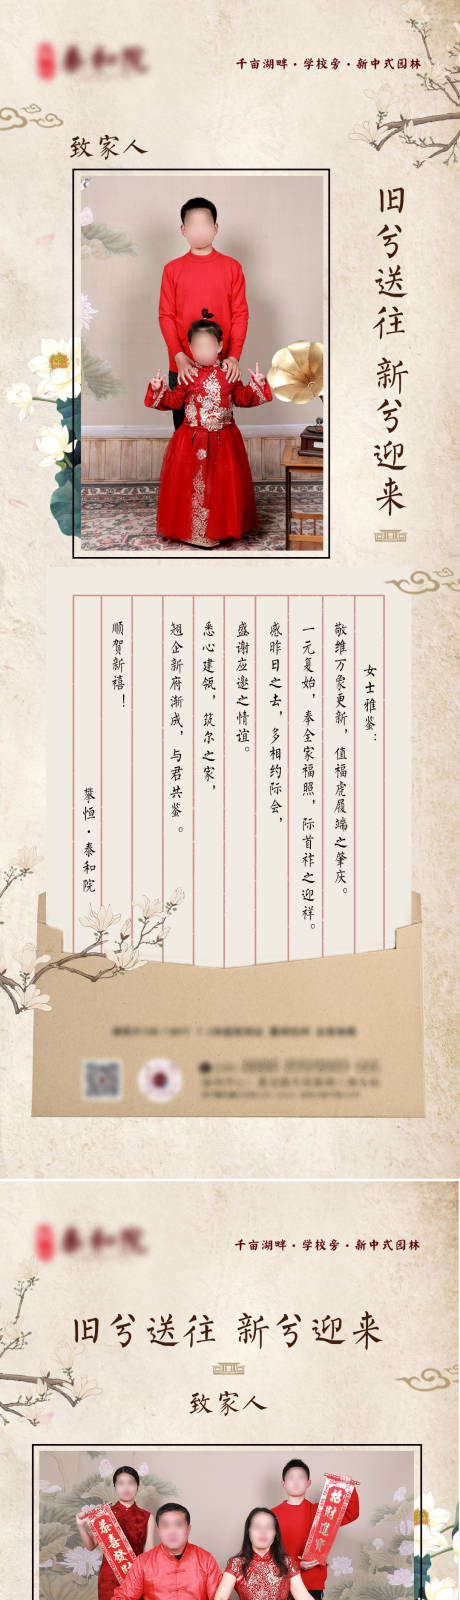 泰和院
千亩湖畔·学校旁·新中式园林
致家人
旧兮送往 新兮迎来
女士雅鉴：
敬维万象更新，值福虎履端之肇庆。
一元复始，奉全家福照，际首祚之迎祥。
感昨日之去，多相约际会，
盛谢应邀之情谊。
悉心建领，筑尔之家，
翘企新府渐成，与君共鉴。
顺贺新禧！
攀恒·泰和院
泰和院
千亩湖畔·学校旁·新中式园林
旧兮送往 新兮迎来
致家人
恭喜發財
招財進寶